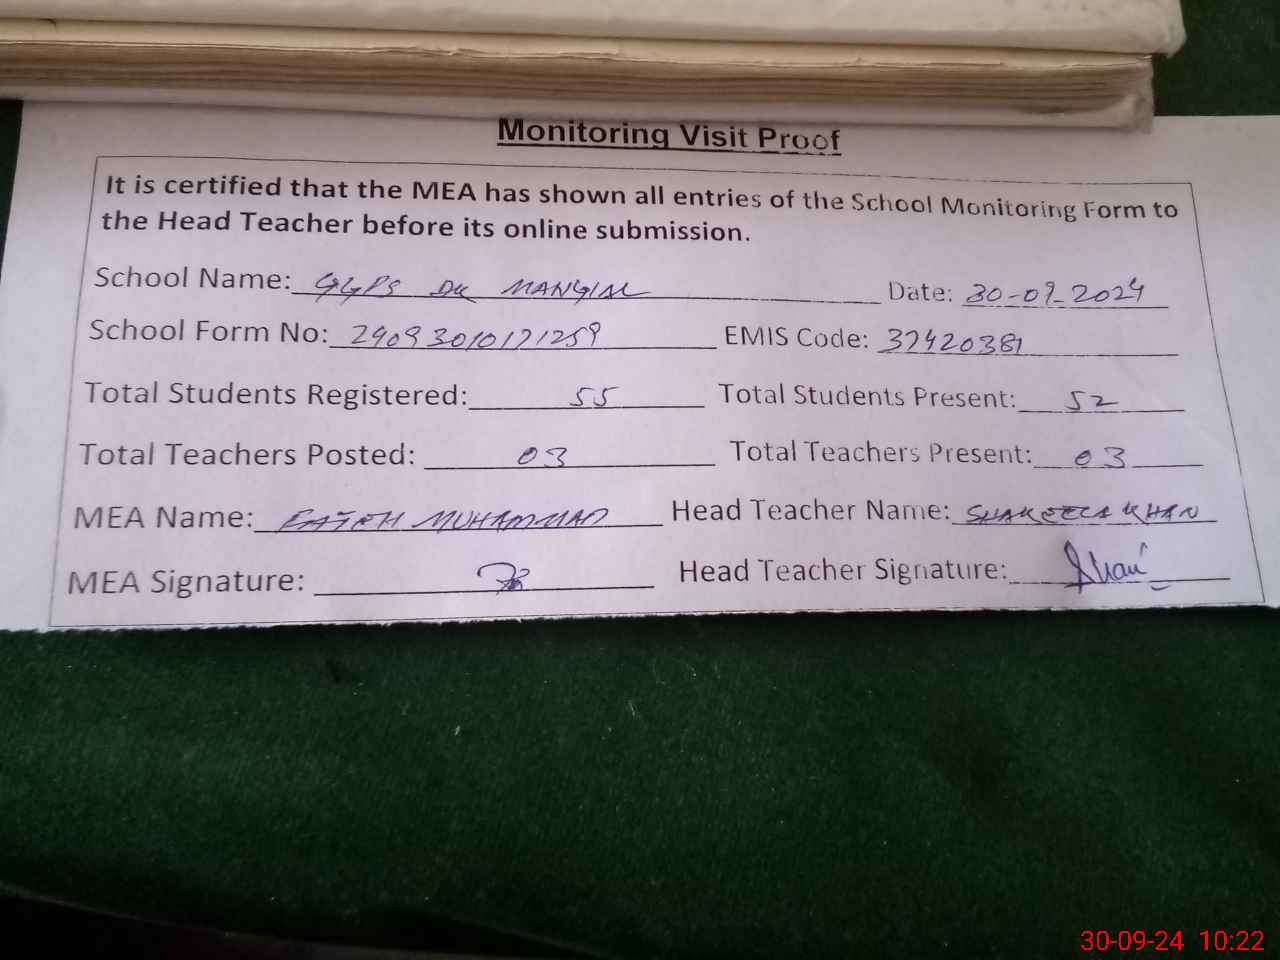 Monitoring Visit Proof
It is certified that the MEA has shown all entries of the School Monitoring Form to
the Head Teacher before its online submission.
School Name: GGPS DK MANGIAL Date: 30-09-2024
School Form No: 24093010121259 EMIS Code: 37420381
Total Students Registered: 55 Total Students Present: 52
Total Teachers Posted: 03 Total Teachers Present: 03
MEA Name: FATEH MUHAMMAD Head Teacher Name: SHAKEELA KHAN
MEA Signature: Head Teacher Signature:
30-09-24 10:22